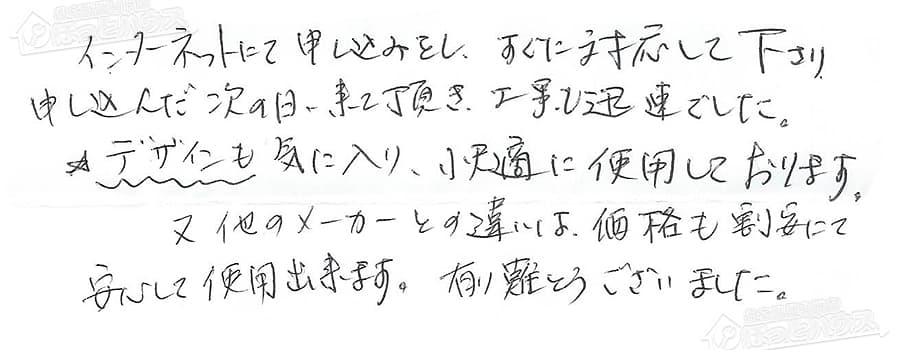 インターネットにて申し込みをし、すぐに対応して下さり
申し込んだ次の日、来て頂き、工事も迅速でした。
☆デザインも気に入り、快適に使用しております。
又他のメーカーとの違いは、価格も割安にて
安心して使用出来ます。有り難とうございました。
ほっとハウス
ほっとハウス